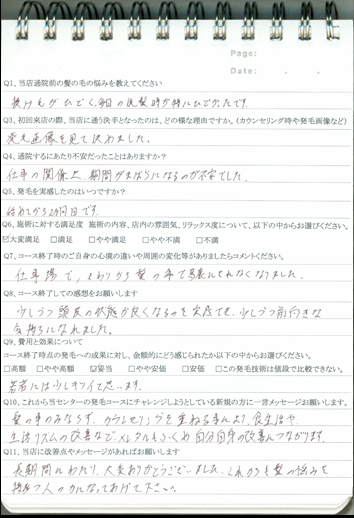 Page:
Date: . .
Q1、当店通院前の髪の毛の悩みを教えてください
抜け毛がひどく、毎日の洗髪時が特にひどかったです。
Q3、初回来店の際、当店に通う決手となったのは、どの様な理由ですか。(カウンセリング時や発毛画像など)
発毛画像を見て決めました。
Q4、通院するにあたり不安だったことはありますか?
仕事の関係上、期間がまばらになるのが不安でした。
Q5、発毛を実感したのはいつですか?
始めてから2ヶ月目です。
Q6、施術に対する満足度 施術の内容、店内の雰囲気、リラックス度について、以下の中からお選びください。
☑大変満足 □満足 □やや満足 □やや不満 □不満
Q7、コース終了時のご自身の心境の違いや周囲の変化等がありましたらコメントください。
仕事場で、まわりから髪の事で馬鹿にされなくなりました。
Q8、コース終了しての感想をお願いします
少しづつ頭皮の状態が良くなるのを実感でき、少しづつ前向きな
気持ちになれました。
Q9、費用と効果について
コース終了時点の発毛への成果に対し、金額的にどう感じられたか以下の中からお選びください。
□高額 □やや高額 ☑妥当 □やや安価 □安価 □この発毛技術は値段で比較できない。
若者には少しキツイと思います。
Q10、これから当センターの発毛コースにチャレンジしようとしている新規の方に一言メッセージお願いします。
髪の事のみならず、カウンセリングを重ねる事により、食生活や
生活リズムの改善など、メンタルもふくめ自分自身の改善につながります。
Q11、当店に改善点やメッセージがあればお願いします
長期間にわたり、大変ありがとうございました。これからも髪の悩みを
持つ人の力になってあげて下さい。